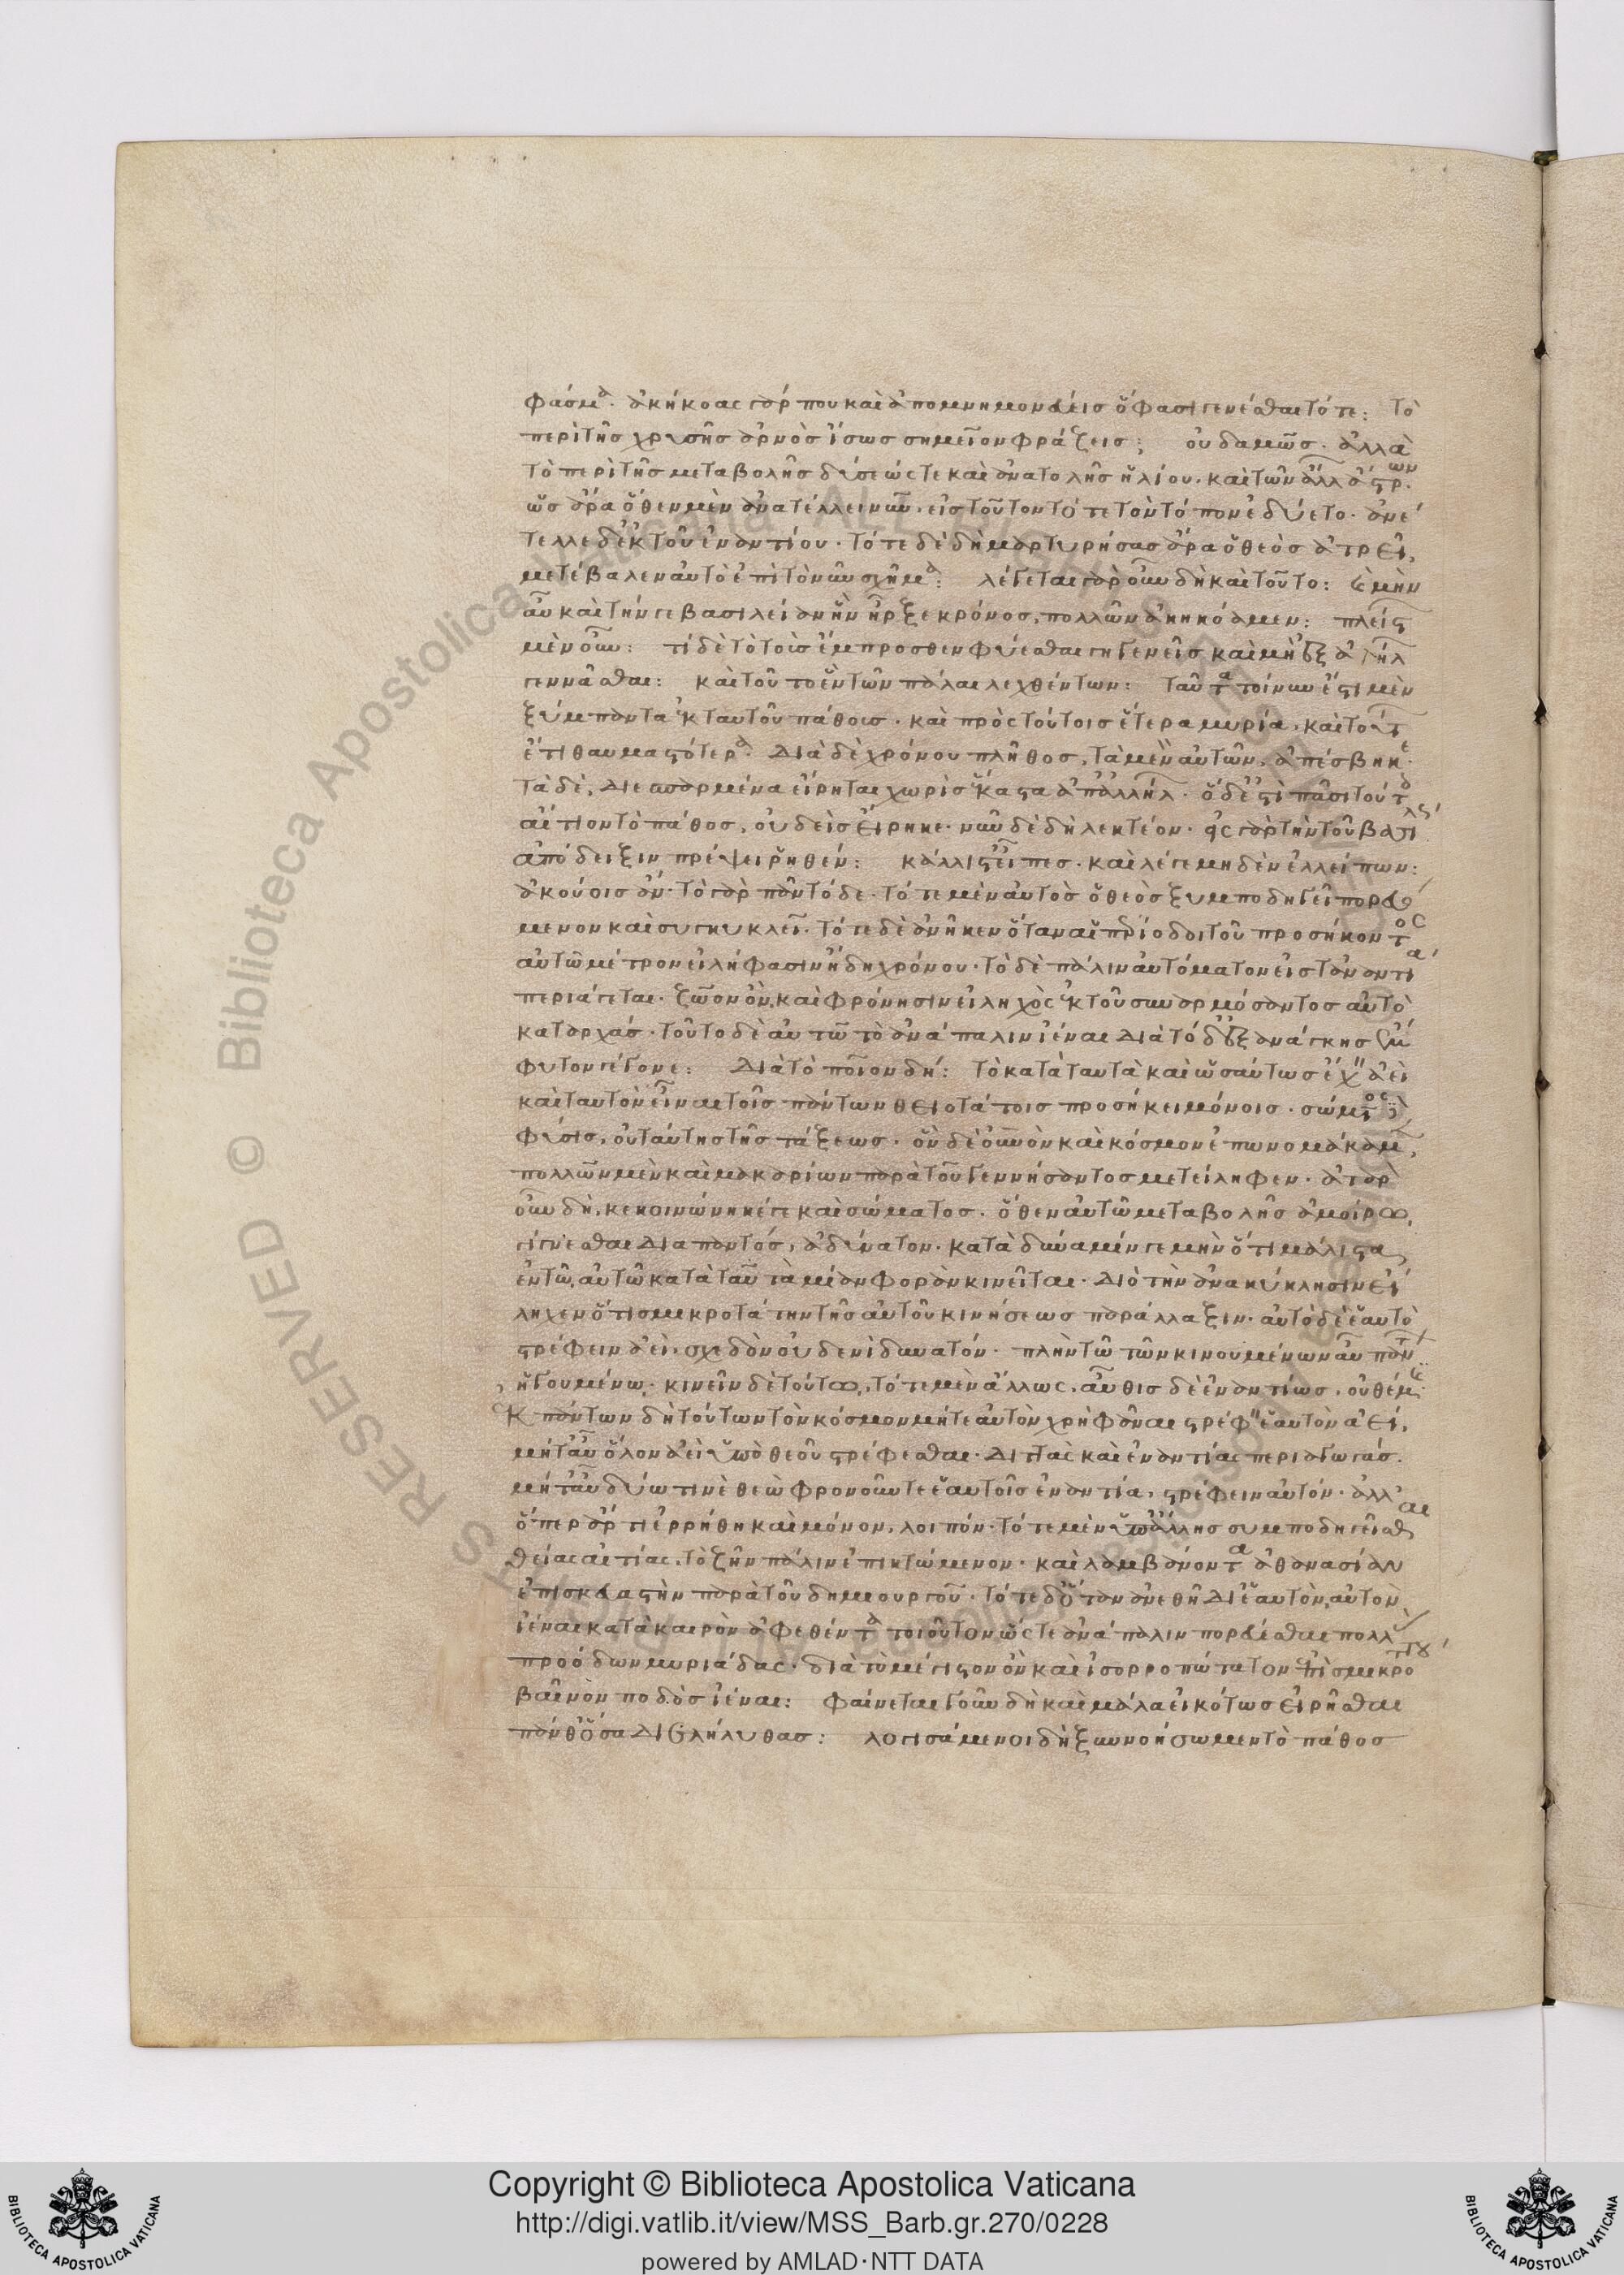 φάσμα. ἀκήκοας γάρ που καὶ ἀπομνημονεύεις ὅ φασι γενέσθαι τότε: Τὸ
περὶ τῆς χρυσῆς ἀρνὸς ἴσως σημεῖον φράζεις; οὐδαμῶς. ἀλλὰ
τὸ περὶ τῆς μεταβολῆς δύσεώς τε καὶ ἀνατολῆς ἡλίου. καὶ τῶν ἄλλ ἄστρων.
ὡς ἄρα ὅθεν μὲν ἀνατέλλει νῦν. εἰς τοῦτον τότε τὸν τόπον ἐδύετο. ἀνέ
τελλε δ' ἐκ τοῦ ἐναντίου. τότε δὲ δὴ μαρτυρήσας ἄρα ὁ θεὸς ἀτρεῖ,
μετέβαλεν αὐτὸ ἐπὶ τὸ νῦν σχῆμα: λέγεται γὰρ οὖν δὴ καὶ τοῦτο: καὶ μὴν
αὖ καὶ τήν γε βασιλείαν ἣν ἦρξε κρόνος, πολλῶν ἀκηκόαμεν: πλείστ
μὲν οὖν: τί δὲ τὸ τοὺς ἔμπροσθεν φύεσθαι γηγενεῖς καὶ μὴ ἐξ ἀλλήλ
γεννᾶσθαι: καὶ τοῦτο ἓν τῶν πάλαι λεχθέντων: ταῦτα τοίνυν ἔστι μὲν
ξύμπαντα ἐκ ταυτοῦ πάθους. καὶ πρὸς τούτοις ἕτερα μυρία. καὶ τούτ
ἔτι θαυμαστότερα. Διὰ δὲ χρόνου πλῆθος, τὰ μὲν αὐτῶν, ἀπέσβηκε.
τὰ δὲ, διεσπαρμένα εἴρηται χωρὶς ἕκαστα ἀπ' ἀλλήλ. ὃ δ' ἐστὶ πᾶσι τούτ
αἴτιον τὸ πάθος, οὐδεὶς εἴρηκε. νῦν δὲ δὴ λεκτέον. εἰς γὰρ τὴν τοῦ βασιλέ
ἀπόδειξιν πρέψει ῥηθέν: κάλλιστ' εἶπες. καὶ λέγε μηδὲν ἐλλείπων:
ἀκούοις ἄν. τὸ γὰρ πᾶν τόδε. τότε μὲν αὐτὸς ὁ θεὸς ξυμποδηγεῖ πορευό
μενον καὶ συγκυκλεῖ. τότε δὲ ἀνῆκεν ὅταν αἱ περίοδοι τοῦ προσήκοντος
αὐτῶ μέτρον εἰλήφασιν ἤδη χρόνου. τὸ δὲ πάλιν αὐτόματον εἰς τἀναντία
περιάγεται. ζῶον ὂν, καὶ φρόνησιν εἰληχὸς ἐκ τοῦ συναρμόσαντος αὐτὸ
κατ' ἀρχάς. τοῦτο δὲ αὐτῶ τὸ ἀνάπαλιν ἰέναι διὰ τόδ' ἐξ ἀνάγκης ἔμ
φυτον γέγονε: Διὰ τὸ ποῖον δή: τὸ κατὰ ταυτὰ καὶ ὡσαύτως ἔχειν ἀεὶ
καὶ ταυτὸν εἶναι τοῖς πάντων θειοτάτοις προσήκει μόνοις. σώματος δὲ
φύσις, οὐ ταύτης τῆς τάξεως. ὃν δὲ οὐρανὸν καὶ κόσμον ἐπωνομάκαμ,
πολλῶν μὲν καὶ μακαρίων παρὰ τοῦ γεννήσαντος μετείληφεν. ἀτὰρ
οὖν δὴ, κεκοινώνηκέ γε καὶ σώματος. ὅθεν αὐτῶ μεταβολῆς ἀμοίρω,
γίγνεσθαι διαπαντός, ἀδύνατον. κατὰ δύναμίν γε μὴν ὅτι μάλιστα
ἐν τῶ αὐτῶ κατὰ ταὐτὰ μίαν φορὰν κινεῖται. διὸ τὴν ἀνακύκλησιν εἴ
ληχεν ὅτι σμικροτάτην τῆς αὐτοῦ κινήσεως παράλλαξιν. αὐτὸ δὲ ἑαυτὸ
στρέφειν ἀεὶ. σχεδὸν οὐδενὶ δυνατόν. πλὴν τῶ τῶν κινουμένων αὖ πάντ
ἡγουμένω. κινεῖν δὲ τούτω, τότε μὲν ἄλλως. αὖθις δὲ ἐναντίως. οὐ θέμις.
ἐκ πάντων δὴ τούτων τὸν κόσμον μήτε αὐτὸν χρὴ φάναι στρέφειν ἑαυτὸν ἀεί,
μήτ' αὖ ὅλον ἀεὶ ὑπὸ θεοῦ στρέφεσθαι. διττὰς καὶ ἐναντίας περιαγωγάς.
μήτ' αὖ δύω τινὲ θεὼ φρονοῦντε ἑαυτοῖς ἐναντία, στρέφειν αὐτόν. ἀλλ'
ὅπερ ἄρτι ἐρρήθη καὶ μόνον, λοιπόν. τότε μὲν ὑπ' ἄλλης συμποδηγεῖσθαι
θείας αἰτίας, τὸ ζῆν πάλιν ἐπικτώμενον. καὶ λαμβάνοντα ἀθανασίαν
ἐπισκευαστὴν παρὰ τοῦ δημιουργοῦ. τότε δ' ὅταν ἀνεθῆ δι' ἑαυτὸν, αὐτὸν
ἰέναι κατὰ καιρὸν ἀφεθέντα τοιοῦτον ὥστε ἀνάπαλιν πορεύεσθαι πολλ
προόδων μυριάδας. διὰ τὸ μέγιστον ὂν καὶ ἰσορροπώτατον ἐπὶ σμικροτάτου
βαῖνον ποδὸς ἰέναι: φαίνεται γοῦν δὴ καὶ μάλα εἰκότως εἰρῆσθαι
πάνθ' ὅσα διελήλυθας: λογισάμενοι δὴ ξυννοήσωμεν τὸ πάθος
Copyright © Biblioteca Apostolica Vaticana
http://digi.vatlib.it/view/MSS_Barb.gr.270/0228
powered by AMLAD·NTT DATA